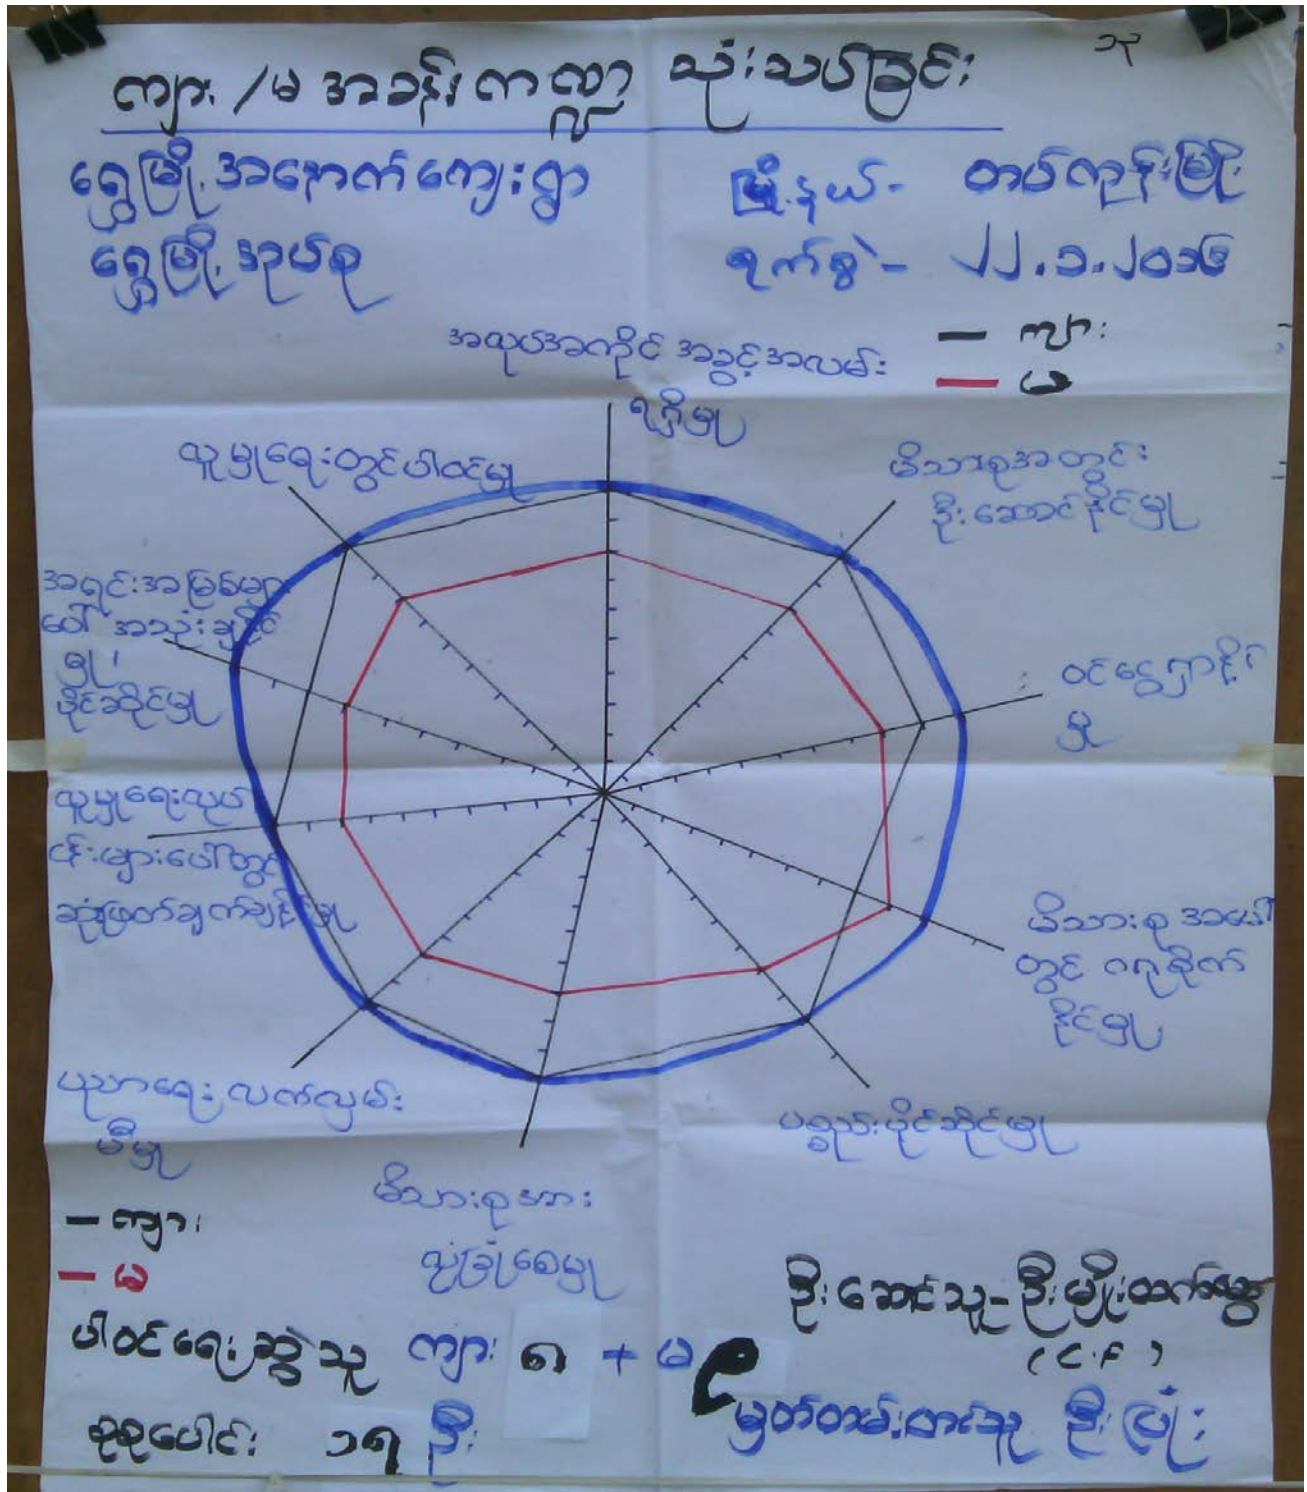 ၁၃
ကျား /မ အခန်းကဏ္ဍ သုံးသပ်ခြင်း
ရွှေမြို့အနောက်ကျေးရွာ
မြို့နယ်- တပ်ကုန်းမြို့
ရွှေမြို့အုပ်စု
ရက်စွဲ- ၂၂.၁.၂၀၁၆
— ကျား
— မ
အလုပ်အကိုင် အခွင့်အလမ်း
ရရှိမှု
မိသားစုအတွင်း
ဦးဆောင်နိုင်မှု
ဝင်ငွေရှာနိုင်
မှု
မိသားစု အပေါ်
တွင် ဂရုစိုက်
နိုင်မှု
ပစ္စည်းပိုင်ဆိုင်မှု
မိသားစုအား
လုံခြုံစေမှု
ပညာရေး လက်လှမ်း
မီမှု
လူမှုရေးလုပ်
ငန်းများပေါ်တွင်
ဆုံးဖြတ်ချက်ချနိုင်မှု
အရင်းအမြစ်များ
ပေါ် အသုံးချနိုင်
မှု၊
ပိုင်ဆိုင်မှု
လူမှုရေးတွင်ပါဝင်မှု
— ကျား
— မ
ပါဝင်ရေးဆွဲသူ ကျား ၈ + မ ၉
စုစုပေါင်း ၁၇ ဦး
ဦးဆောင်သူ- ဦးမျိုးထက်ဆွေ
(C.F)
မှတ်တမ်းတင်သူ ဦးပြုံး